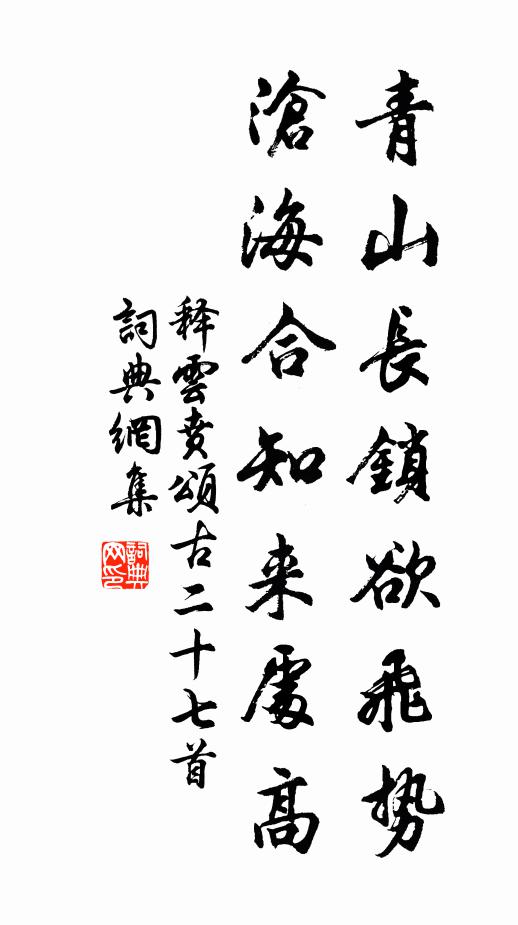 青山長鎖欲飛勢
滄海合知来處高
释雲賁頌古二十七首
詞典網集
詞典
网印